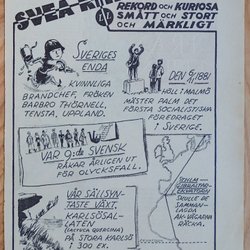 SVEA-RIKE
REKORD OCH KURIOSA
SMÅTT OCH STORT
OCH MÄRKLIGT
SVERIGES
ENDA
KVINNLIGA
BRANDCHEF, FRÖKEN
BARBRO THÖRNELL,
TENSTA, UPPLAND.
DEN 6/11 1881
HÖLL I MALMÖ
MÄSTER PALM DET
FÖRSTA SOCIALISTISKA
FÖREDRAGET
I SVERIGE.
VAR 9:de SVENSK
RÅKAR ÅRLIGEN UT
FÖR OLYCKSFALL.
VÅR SÄLLSYN-
TASTE VÄXT.
KARLSÖSAL-
LATEN
(LACTUCA QUERCINA)
PÅ STORA KARLSÖ
I 300 EX.
SKULLE DE
SAMMAN-
LAGDA
VÄGARNA
RÄCKA.